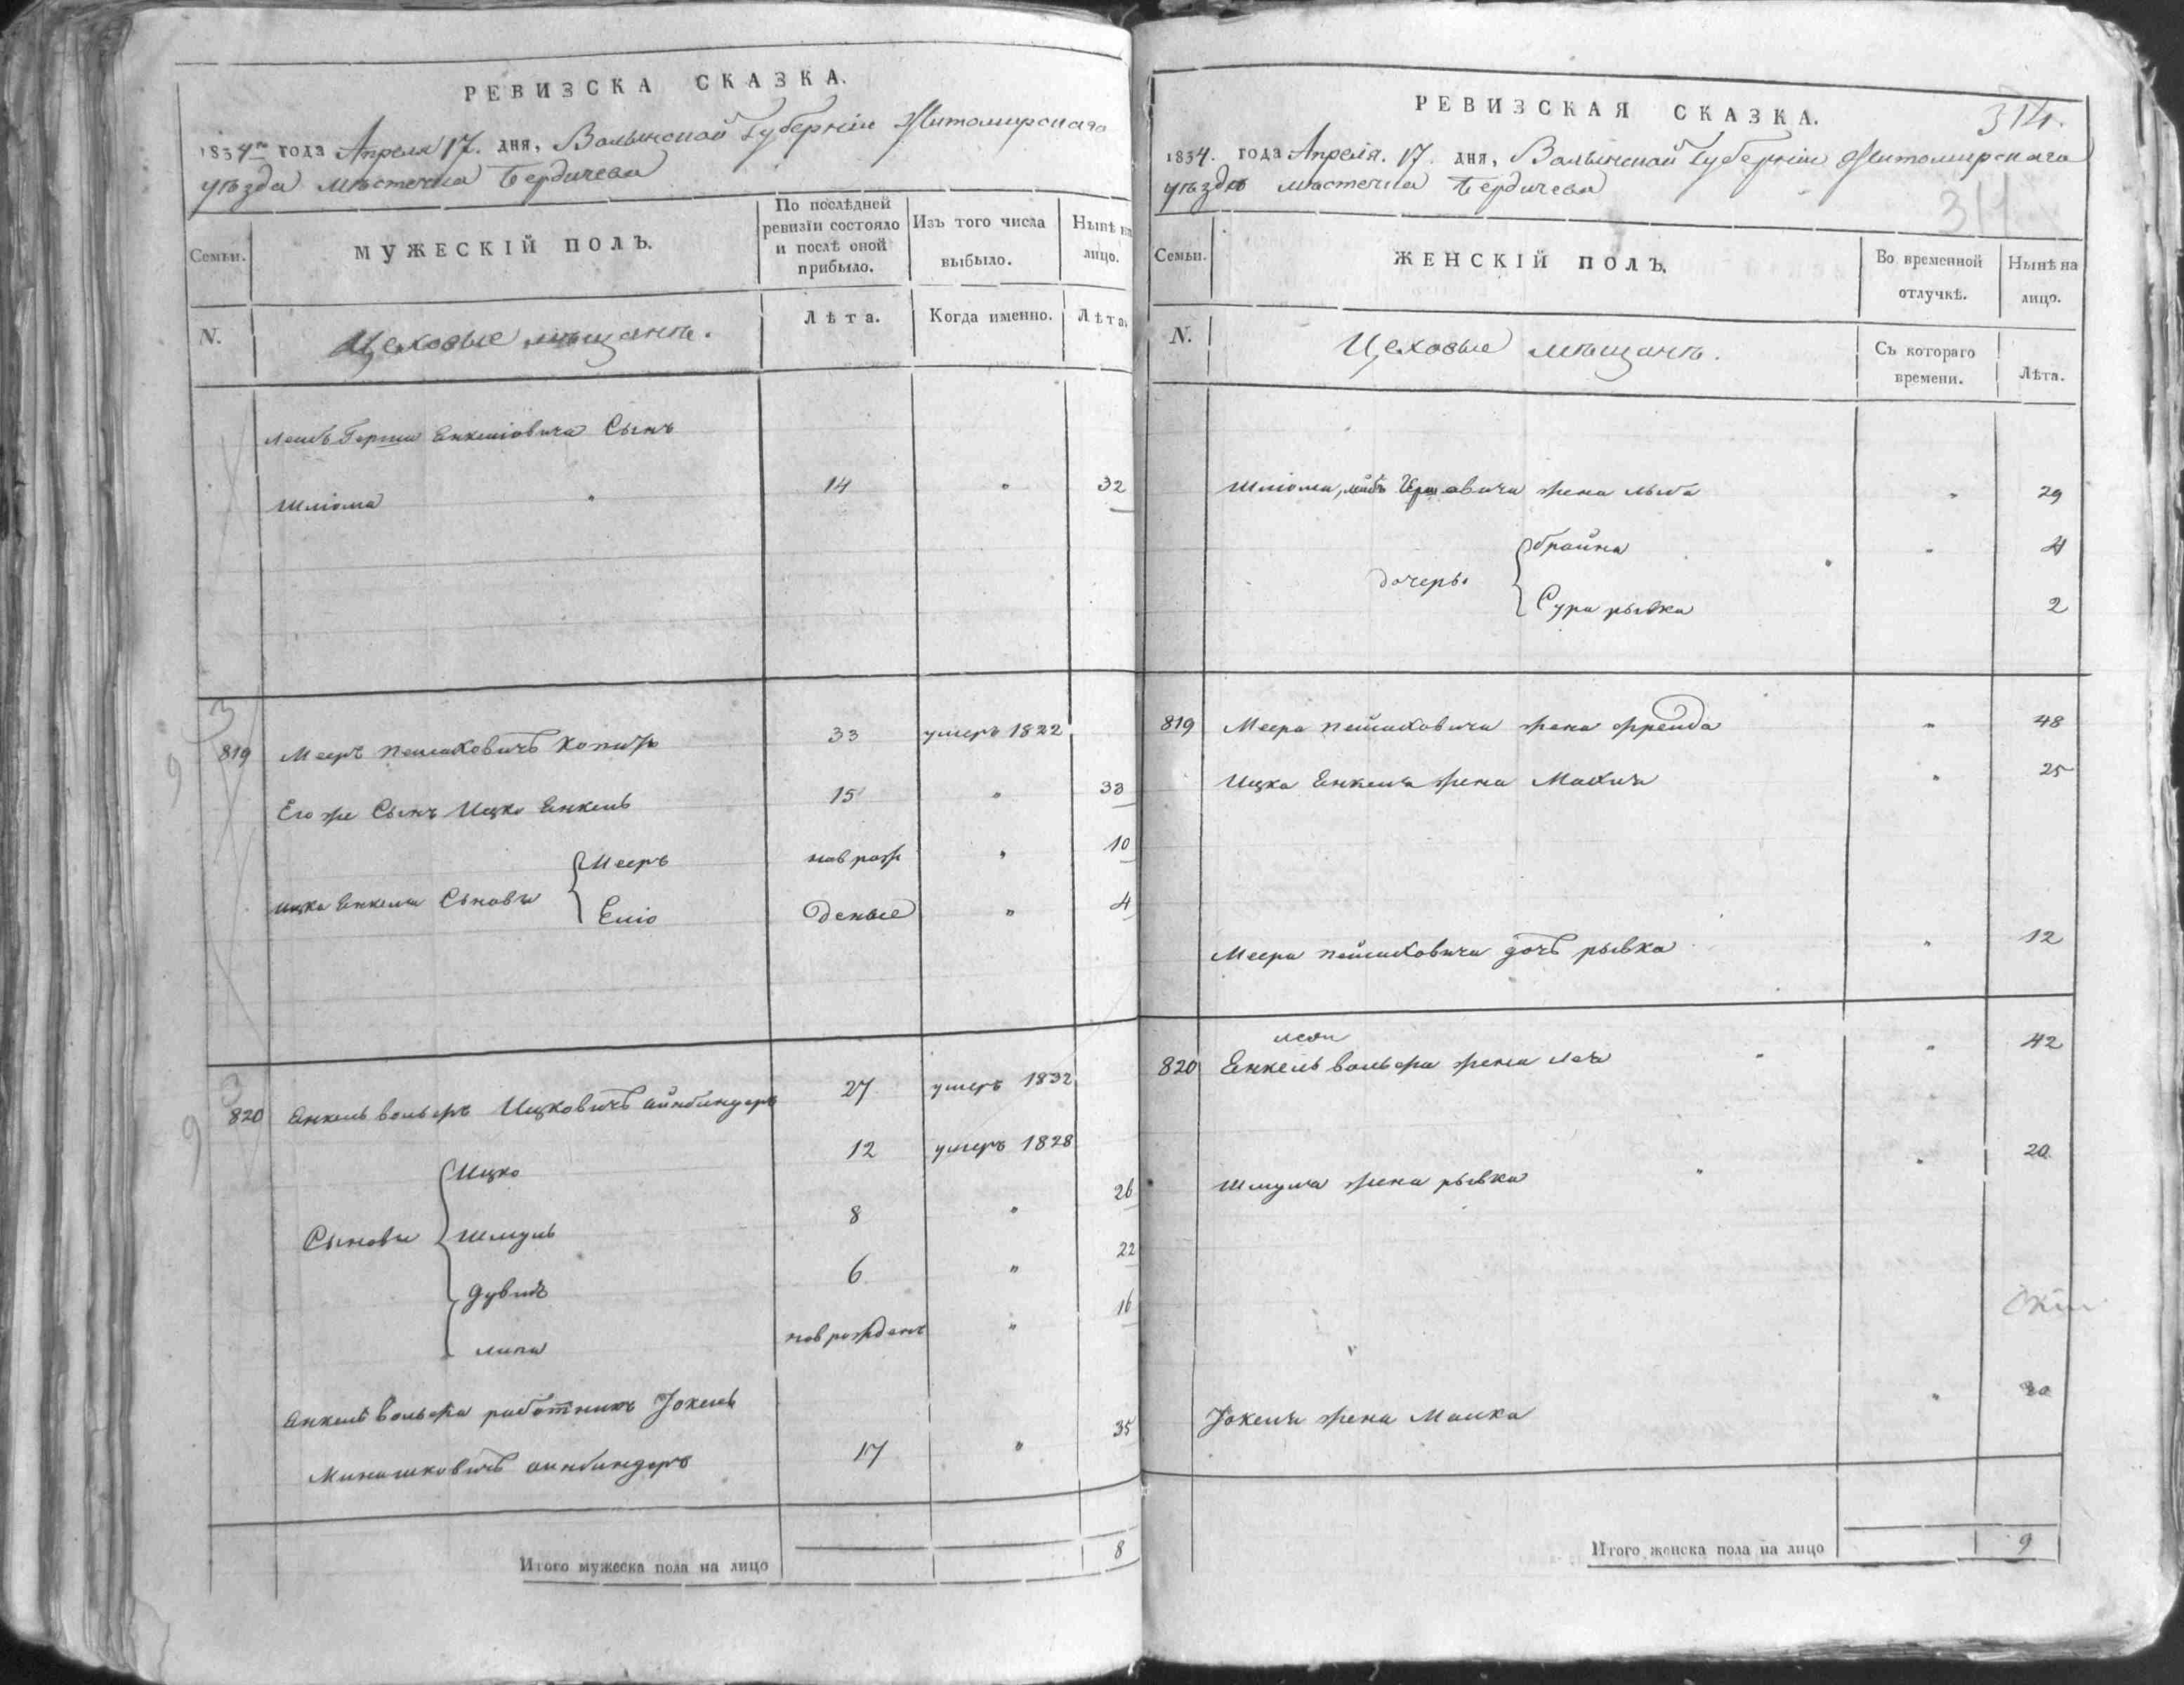 РЕВИЗСКА СКАЗКА.
1834го года Апреля 17. дня, Волынской Губернiи Житомирскаго
уѣзда мѣстечка Бердичева
Семьи.
МУЖЕСКІЙ ПОЛЪ.
По послѣдней ревизіи состояло и послѣ оной прибыло.
Изъ того числа выбыло.
Нынѣ на лицо.
N.
Цеховые мѣщане.
Лѣта.
Когда именно.
Лѣта.
Лейбъ Герша Енкелiовича Сынъ
Шлiома " 14 " 32
819 Мееръ Пейсаховичъ 33 умеръ 1822
Его же Сынъ Ицко Енкель 15 " 33
Мееръ нов рож " 10
Ицка Енкеля Сыновья
Елiо денные " 4
820 Енкель вольфъ Ицковичъ айнбиндеръ 27 умеръ 1832
Ицко 12 умеръ 1828
Сыновья
Шмуль 8 " 26
Дувидъ 6 " 22
липа новрожден " 16
Енкель вольфа работникъ Іокель
Минашковичъ аинбиндеръ 17 " 35
Итого мужеска пола на лицо 8
РЕВИЗСКАЯ СКАЗКА.
314.
1834. года Апреля. 17. дня, Волынской Губернiи Житомирскаго
уѣзда мѣстечка Бердичева
Семьи.
ЖЕНСКІЙ ПОЛЪ.
Во временной отлучкѣ.
Нынѣ на лицо.
N.
Цеховые мѣщане.
Съ котораго времени.
Лѣта.
Шлiома, лейбъ Гершовича жена " 29
брайна " 4
дочеры
Сура рывка 2
819 Меера Пейсаховича жена фрейда " 48
Ицка Енкеля жена Малка " 25
Меера Пейсаховича дочь рывка " 12
820 Енкель вольфа жена Лея " 42
Шмуля жена рывка " 20
Іокеля жена Малка "
Итого женска пола на лицо 9